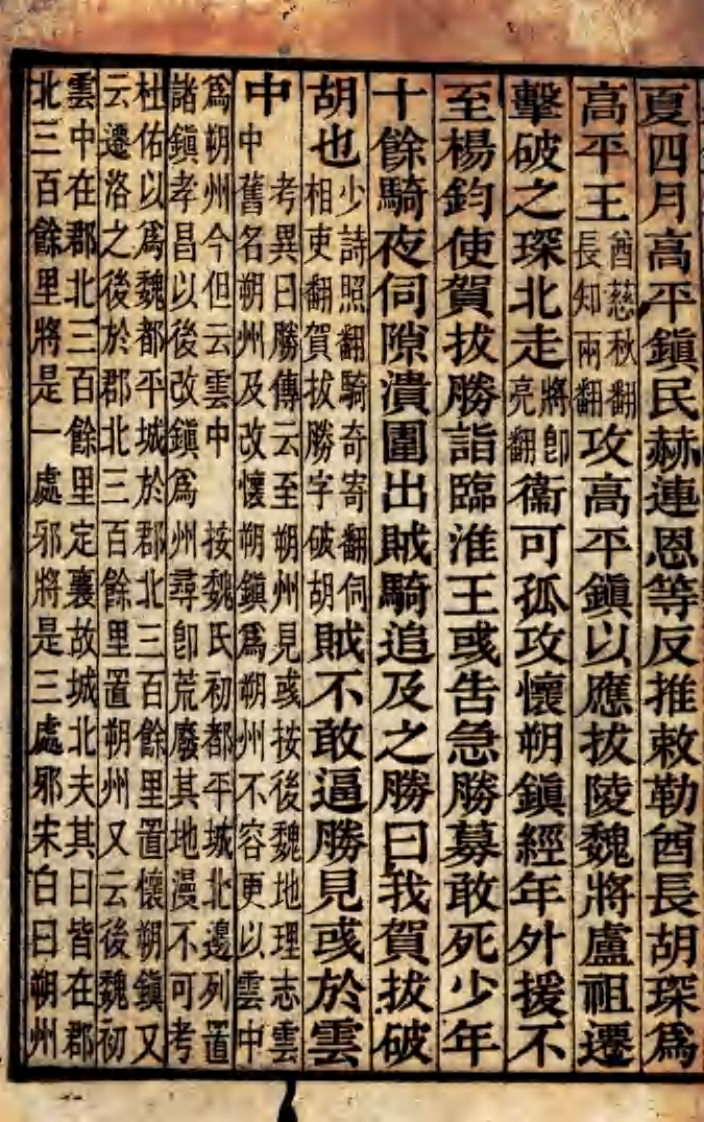 夏四月高平鎮民赫連恩等反推敕勒酋長胡琛爲
高平王酋慈秋翻長知兩翻攻高平鎮以應拔陵魏將盧祖遷
擊破之琛北走將卽亮翻衞可孤攻懷朔鎮經年外援不
至楊鈞使賀拔勝詣臨淮王彧告急勝募敢死少年
十餘騎夜伺隙潰圍出賊騎追及之勝曰我賀拔破
胡也少詩照翻騎奇寄翻伺相吏翻賀拔勝字破胡賊不敢逼勝見彧於雲
中考異曰勝傳云至朔州見彧按後魏地理志雲
中舊名朔州及改懷朔鎮爲朔州不容更以雲中
爲朔州今但云雲中 按魏氏初都平城北邊列置
諸鎮孝昌以後改鎮爲州尋卽荒廢其地漫不可考
杜佑以爲魏都平城於郡北三百餘里置懷朔鎮又
云遷洛之後於郡北三百餘里置朔州又云後魏初
雲中在郡北三百餘里定襄故城北夫其曰皆在郡
北三百餘里將是一處邪將是三處邪宋白曰朔州